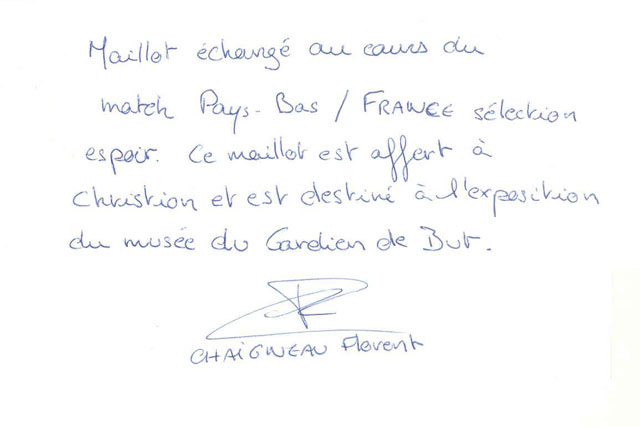 Maillot échangé au cours du
match Pays-Bas / FRANCE sélection
espoir. Ce maillot est offert à
Christian et est destiné à l'exposition
du musée du Gardien de But.
CHAIGNEAU Florent